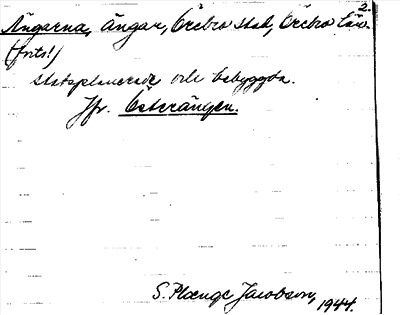 2.
Ängarna, ängar, Örebro stad, Örebro län.
(forts!)
stadsplanerade och bebyggda.
Jfr. Österängen.
S. Plænge Jacobson,
1944.